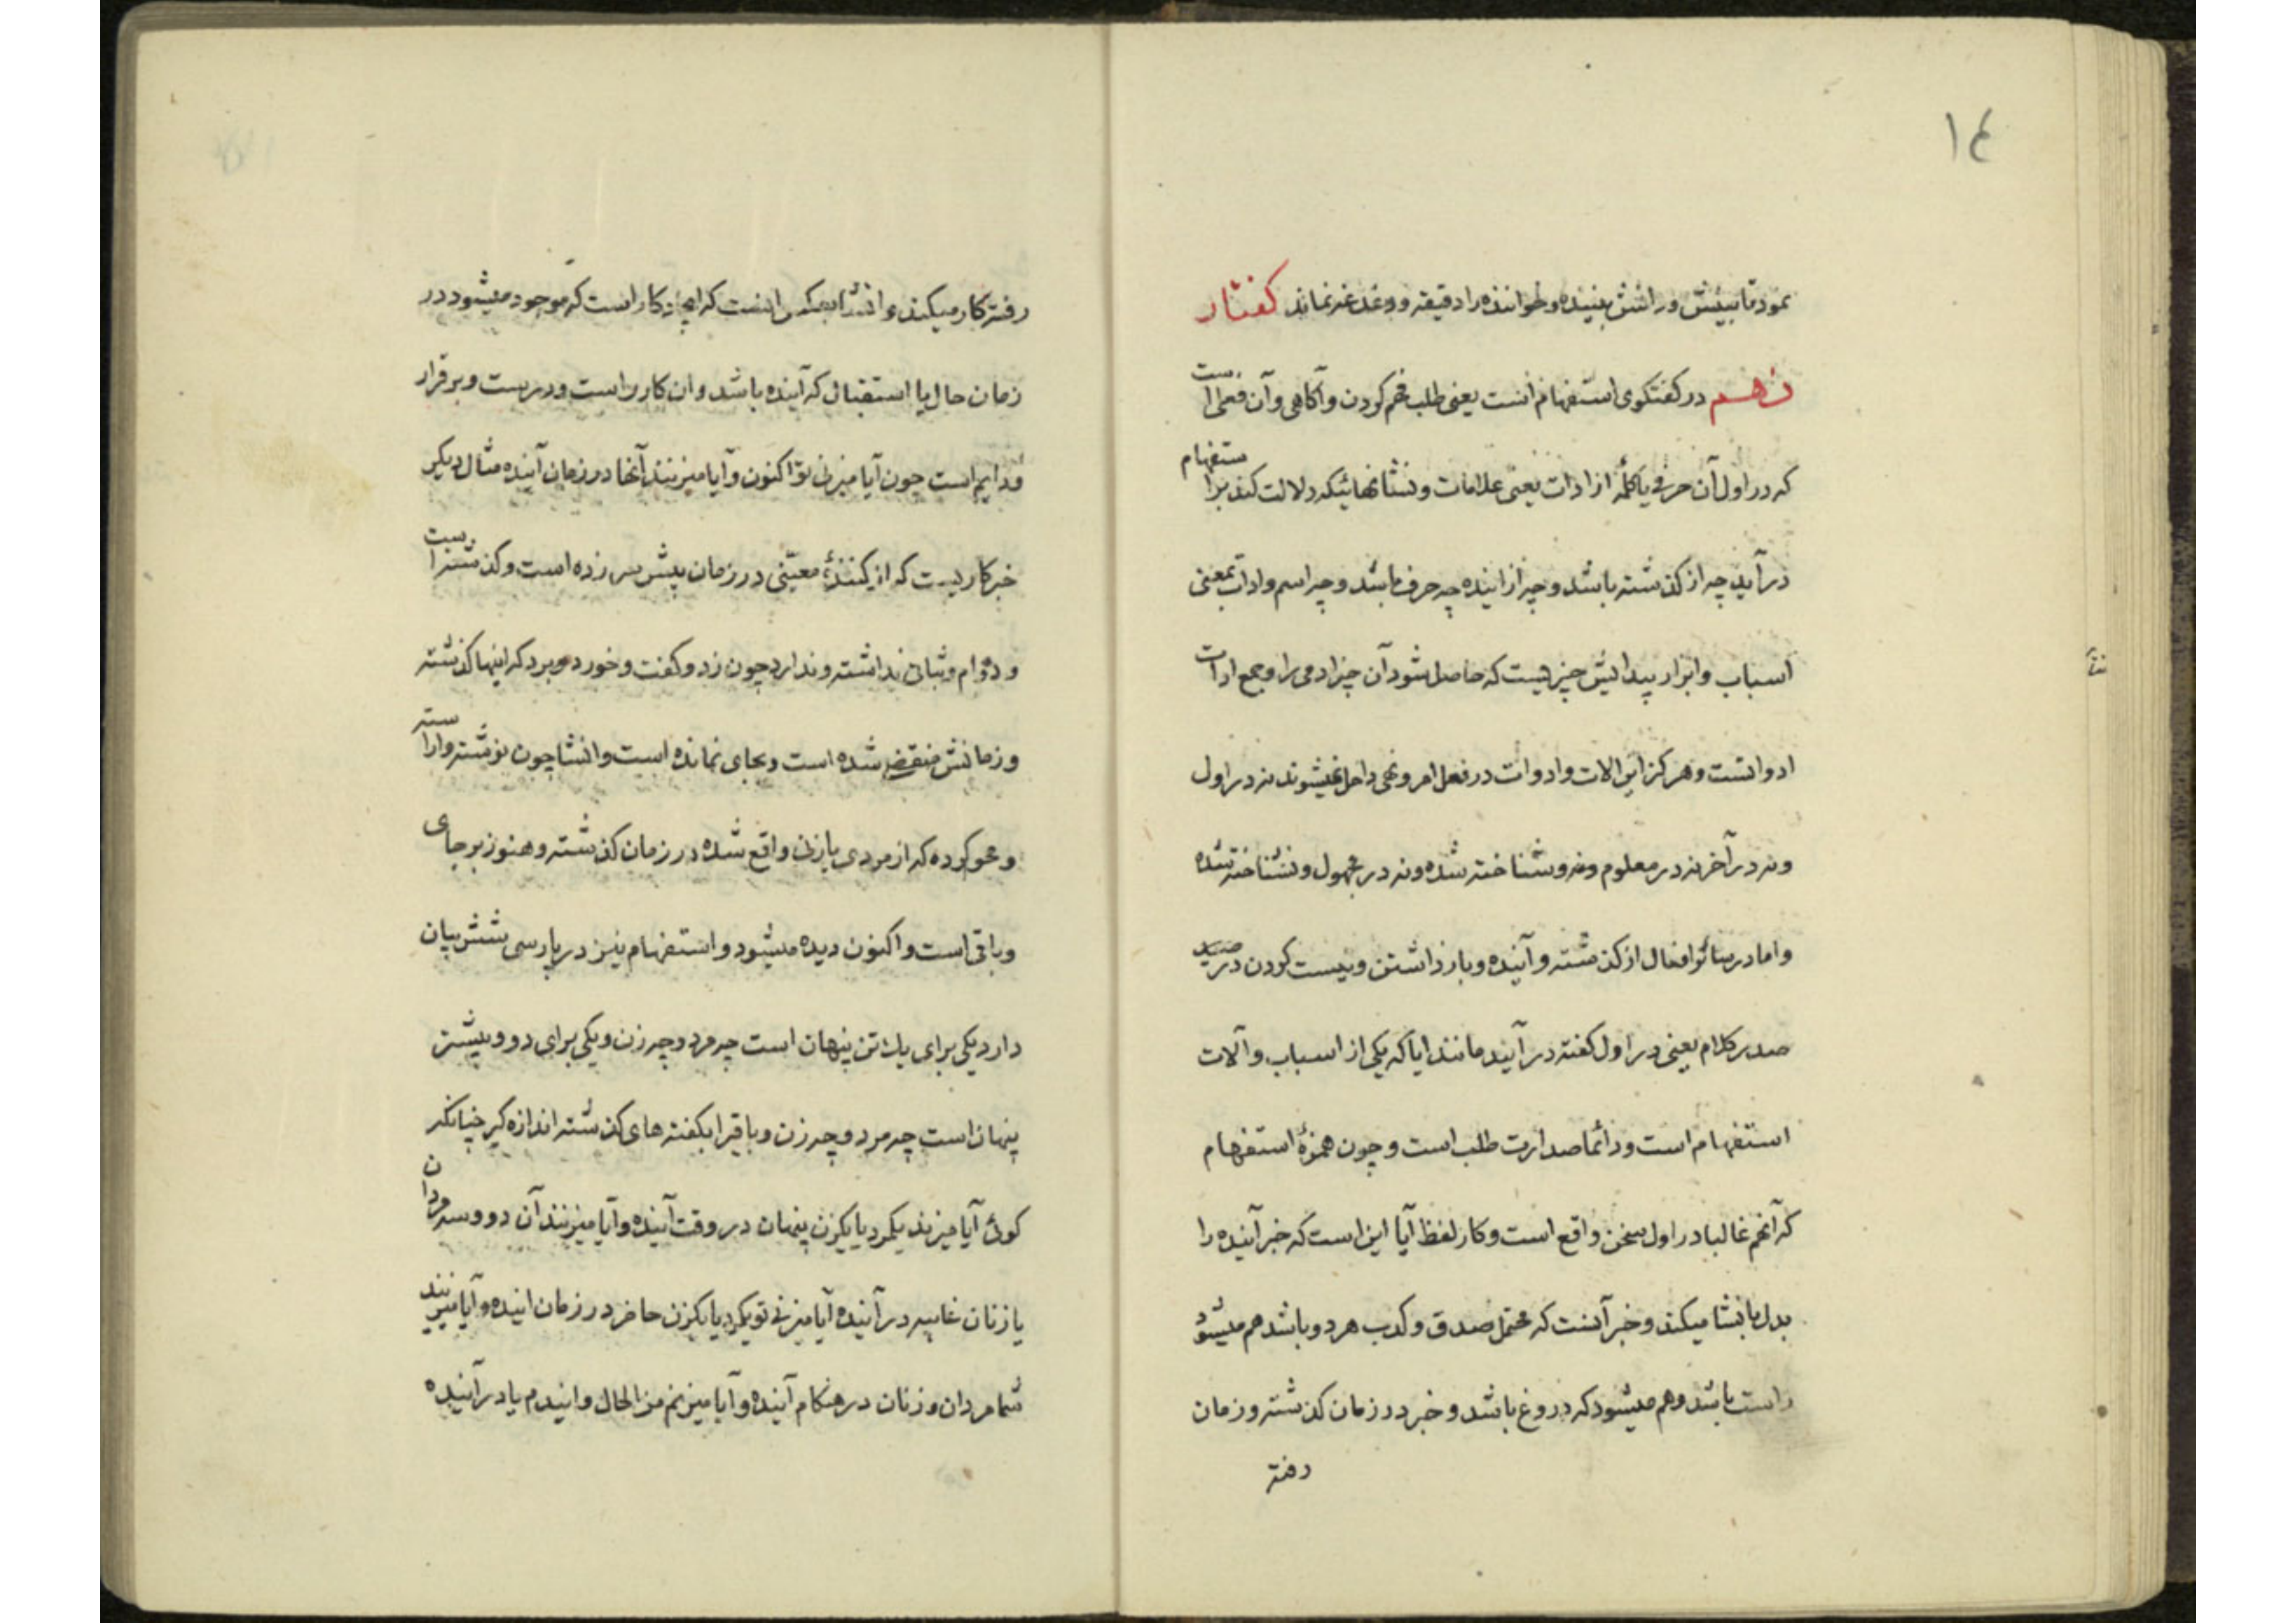 ١٤
نمود تا بینش ورانش بیننده و خواننده را دقیقه و دغدغه نماند کفتار
نهم در کفتکوی استفهام انست یعنی طلب فهم کردن و آکاهی و آن فعلی است
که در اول آن حرفی یا کلمهٔ از ادات یعنی علامات و نشانهائیکه دلالت کند بر استفهام
در آید چه از کذشته باشد و چه از اینده چه حرف باشد و چه اسم و ادات بمعنی
اسباب و ابزار پیدایش چیزیست که حاصل شود آن چیز ادمی را و جمع ادات
ادواتست و هرکز این الات و ادوات در فعل امر و نهی داخل نمیشوند نه در اول
ونه در آخر نه در معلوم ونه وشناخته شده ونه در مجهول و نشناخته شده
و اما در سائر افعال از کذشته و آینده و باز داشتن و نیست کردن در
صدر کلام یعنی در اول کفته در آیند مانند ایا که یکی از اسباب و آلات
استفهام است و دائما صدارت طلب است و چون همزهٔ استفهام
که آنهم غالبا در اول سخن واقع است و کار لفظ آیا این است که خبر آینده را
بدل بانشا میکند و خبر آنست که محتمل صدق و کذب هر دو باشد هم میشود
راست باشد و هم میشود که دروغ باشد و خبر در زمان کذشته و زمان
رفته
رفته کار میکند و انشا بعکس اینست که ایجاد کار است که موجود میشود در
زمان حال یا استقبال که آینده باشد و ان کار راست و درست و برقرار
و دایم است چون آیا میزنی تو اکنون و آیا میزنند آنها در زمان آینده مثال دیکر
خبر کاریست که از کنندهٔ معیّنی در زمان پیش سر زده است و کذشته است
و دوام و ثباتی نداشته و ندارد چون زد و کفت و خورد و برد که اینها کذشته
و زمانش منقضی شده است و بجای نمانده است و انشا چون نوشته و اراسته
و محو کرده که از مردی یا زنی واقع شده در زمان کذشته و هنوز بر جای
و باقی است و اکنون دیده میشود و استفهام نیز در پارسی شش بیان
دارد یکی برای یك تن پنهان است چه مرد و چه زن و یکی برای دو و بیشتر
پنهان است چه مرد و چه زن و باقیرا بکفته های کذشته اندازه کیر چنانکه
کوئی آیا میزند یکمرد یا یکزن پنهان در وقت آینده و آیا میزنند آن دو و سه مردان
یا زنان غایبه در آینده آیا میزنی تو یکمرد یا یکزن حاضر در زمان اینده و آیا میزنید
شما مردان و زنان در هنکام آینده و آیا میزنم من الحال و ایندم یا در آینده